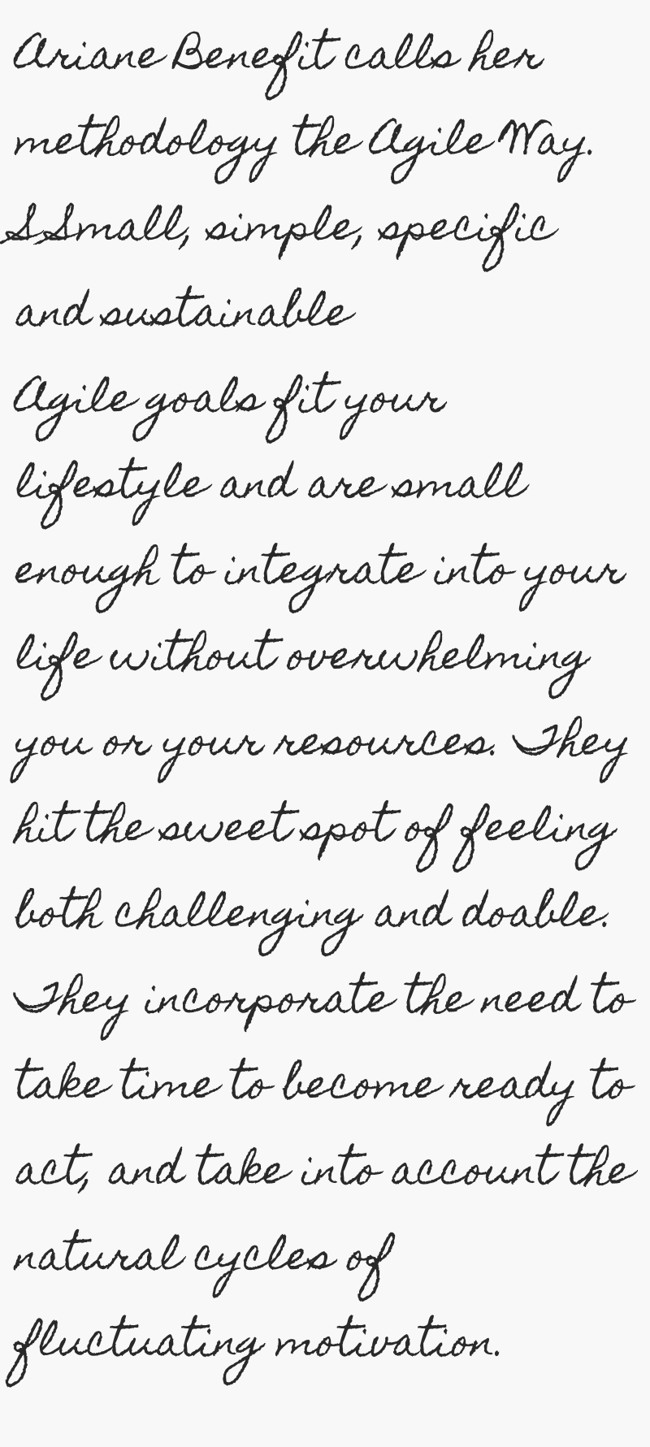 Ariane Benefit calls her
methodology the Agile Way.
SSmall, simple, specific
and sustainable
Agile goals fit your
lifestyle and are small
enough to integrate into your
life without overwhelming
you or your resources. They
hit the sweet spot of feeling
both challenging and doable.
They incorporate the need to
take time to become ready to
act, and take into account the
natural cycles of
fluctuating motivation.